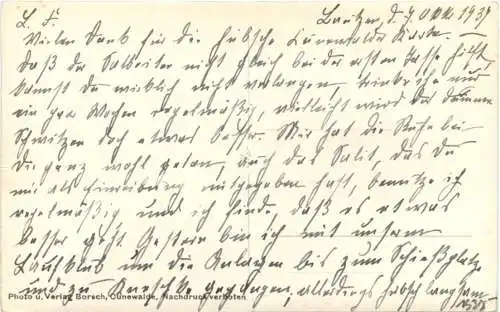 L. F. Bautzen, d. 7. Okt. 1937
Vielen Dank für die hübsche Cunewalder Karte. —
daß der Salbeitee nicht gleich bei der ersten Tasse hilft,
kannst Du wirklich nicht verlangen, trinke ihn nur
ein paar Wochen regelmäßig, vielleicht wird das dumme
Schwitzen doch etwas besser. Mir hat die Ruhe bei
Dir ganz wohl getan, auch das Salit, das Du
mir als Einreibung mitgegeben hast, benutze ich
regelmäßig und ich finde, daß es etwas
besser geht. Gestern bin ich mit unserm
Laufklub um die Anlagen bis zum Schießplatz
und zu gegangen, allerdings hübsch langsam
Photo u. Verlag Borsch, Cunewalde. Nachdruck verboten